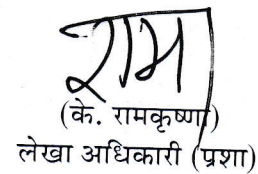 राम
(के. रामकृष्णा)
लेखा अधिकारी (प्रशा)